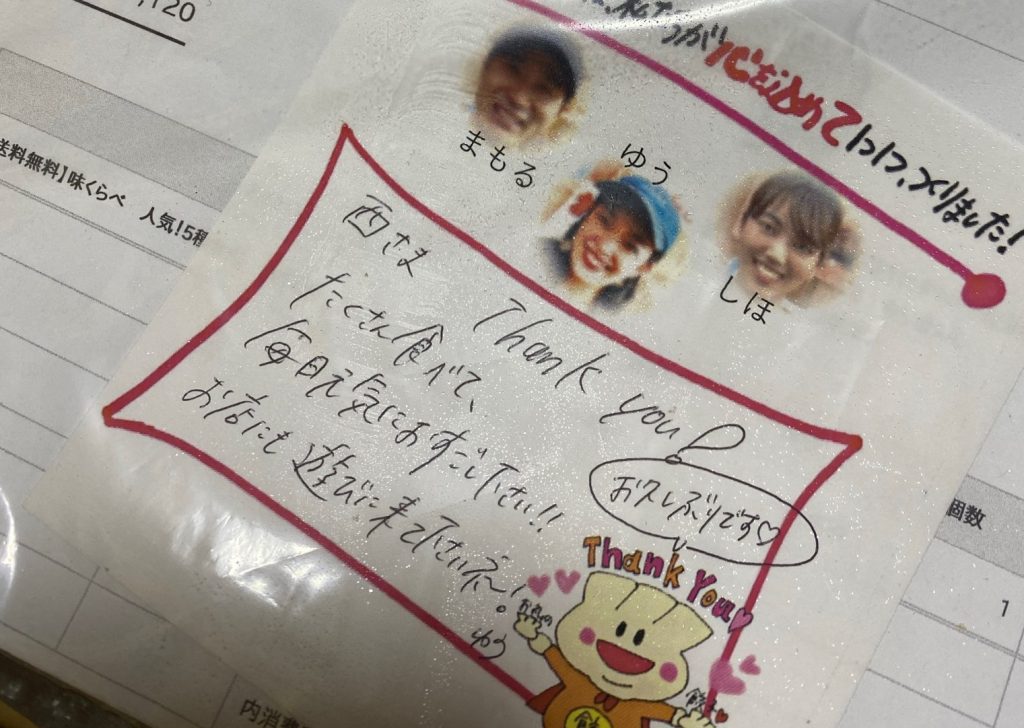 ,120
心を込めて1つ1つ、つくりました!
送料無料】味くらべ 人気!5種
まもる
ゆう
しほ
西さま Thank you!
たくさん食べて、
毎日元気におすごし下さい!!
お店にも遊びに来て下さいネ〜!
ゆう
お久しぶりです♡
Thank You
個数
1
内消費